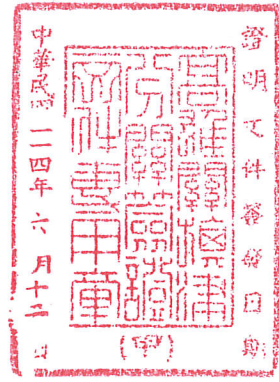 證明文件簽發日期
高雄關機津
分關簽證
文件專用章
(甲)
中華民國一一四年六月十二日